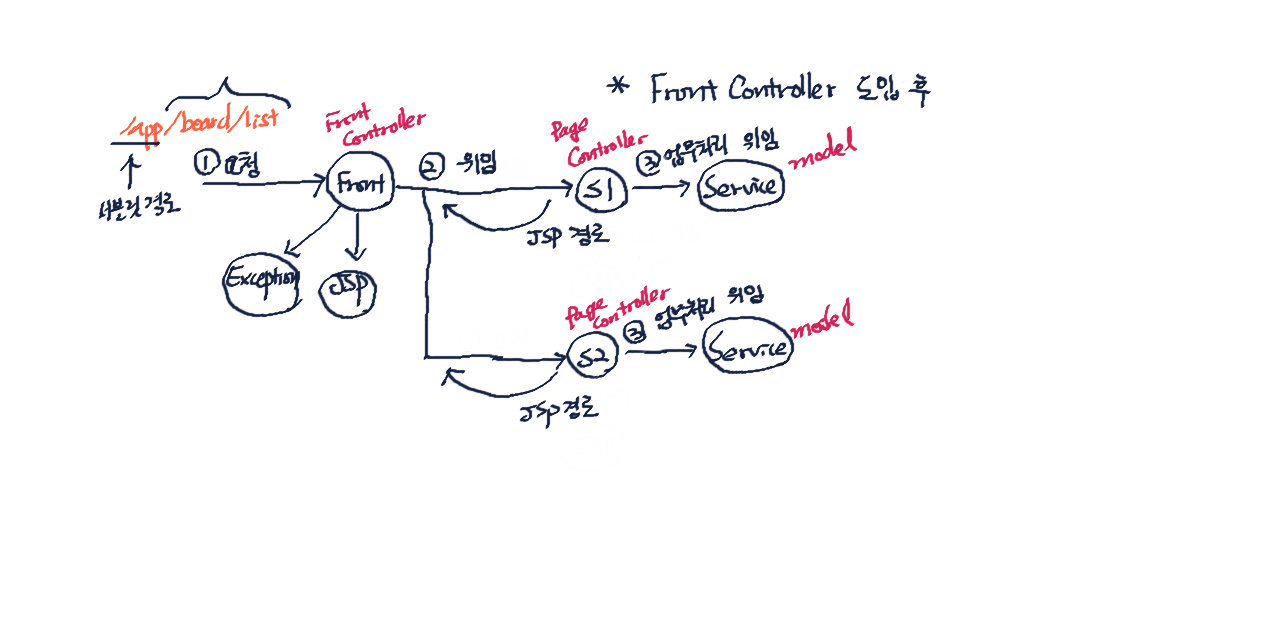 * Front Controller 도입 후
/app/board/list
서블릿 경로
① 요청
Front Controller
Front
Exception
JSP
② 위임
Page Controller
S1
JSP 경로
③ 업무처리 위임
Service
model
Page Controller
S2
JSP 경로
③ 업무처리 위임
Service
model